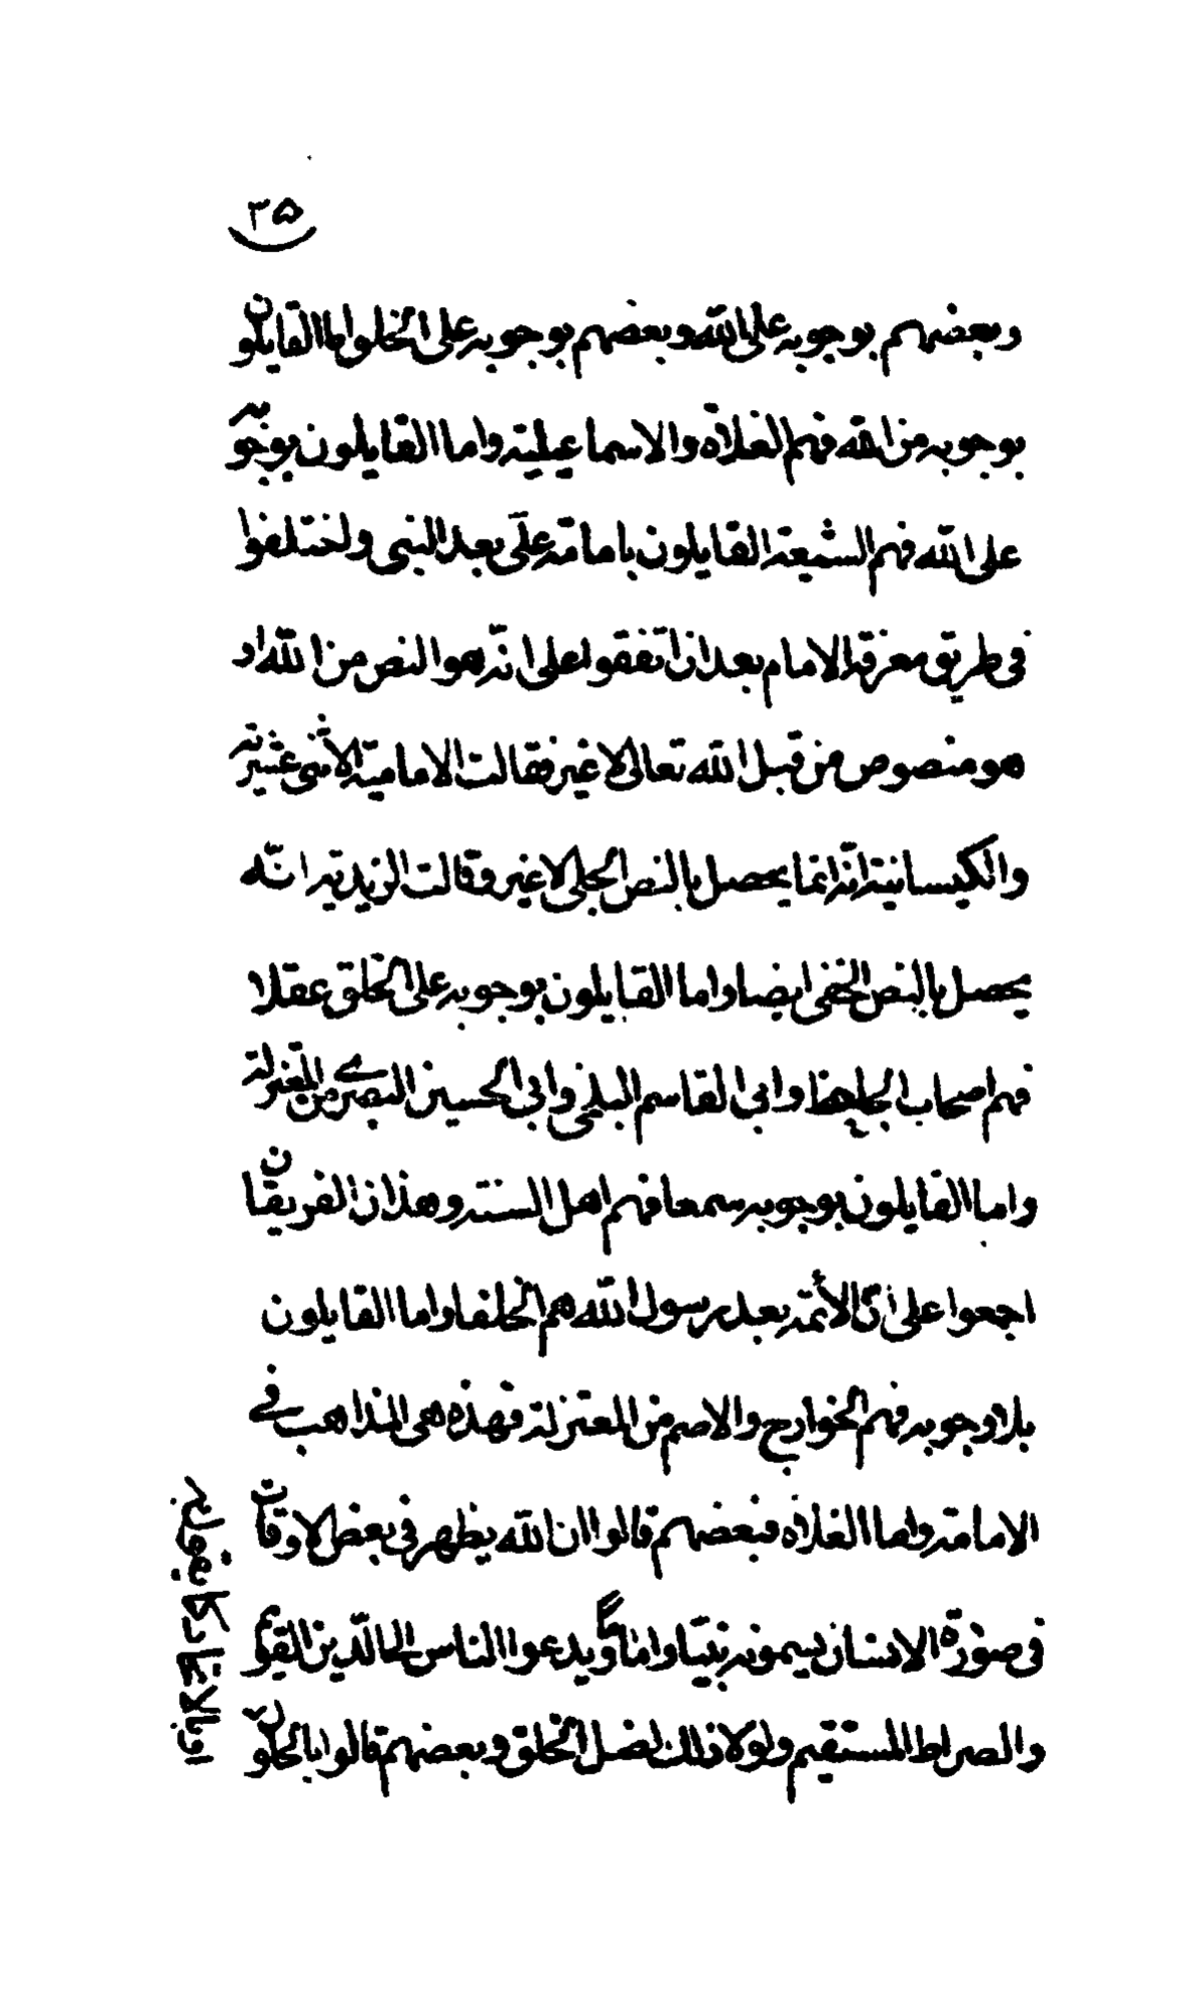 ٣۵
وبعضهم بوجوبه على الله وبعضهم بوجوبه على الخلق واما القايلون
بوجوبه من الله فهم الغلاة والاسماعيلية واما القايلون بوجوبه
على الله فهم الشيعة القايلون بامامة على بعد النبي واختلفوا
في طريق معرفة الامام بعد ان اتفقوا على انه هو النص من الله او
هو منصوص من قبل الله تعالى لا غير فقالت الامامية الاثنى عشرية
والكيسانية انه انما يحصل بالنص الجلى لا غير وقالت الزيدية انه
يحصل بالنص الخفى ايضا واما القايلون بوجوبه على الخلق عقلا
فهم اصحاب الجاحظ وابى القاسم البلخى وابى الحسين البصرى من المعتزلة
واما القايلون بوجوبه سمعا فهم اهل السنة وهذان الفريقان
اجمعوا على ان الأئمة بعد رسول الله هم الخلفا واما القايلون
بلا وجوبه فهم الخوارج والاصم من المعتزلة فهذه هى المذاهب في
الامامة واما الغلاة فبعضهم قالوا ان الله يظهر في بعض الاوقات
في صورة الانسان يسمونه نبيا واماما ويدعوا الناس الى الدين القويم
والصراط المستقيم ولولا ذلك لضل الخلق وبعضهم قالوا بالحلول